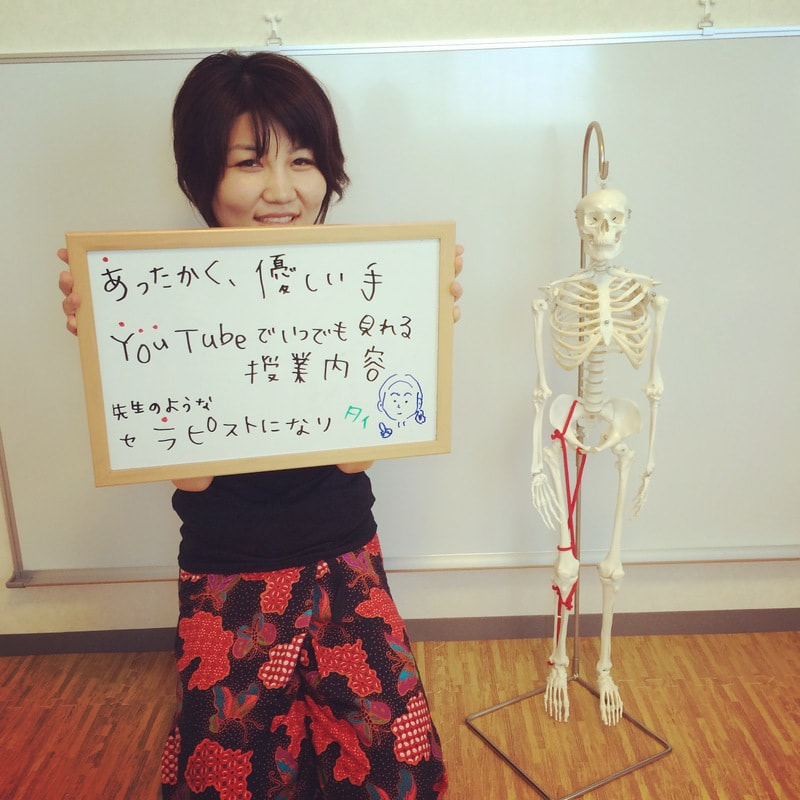 あったかく、優しい手
YouTubeでいつでも見れる
授業内容
先生のような
セラピストになり
タイ